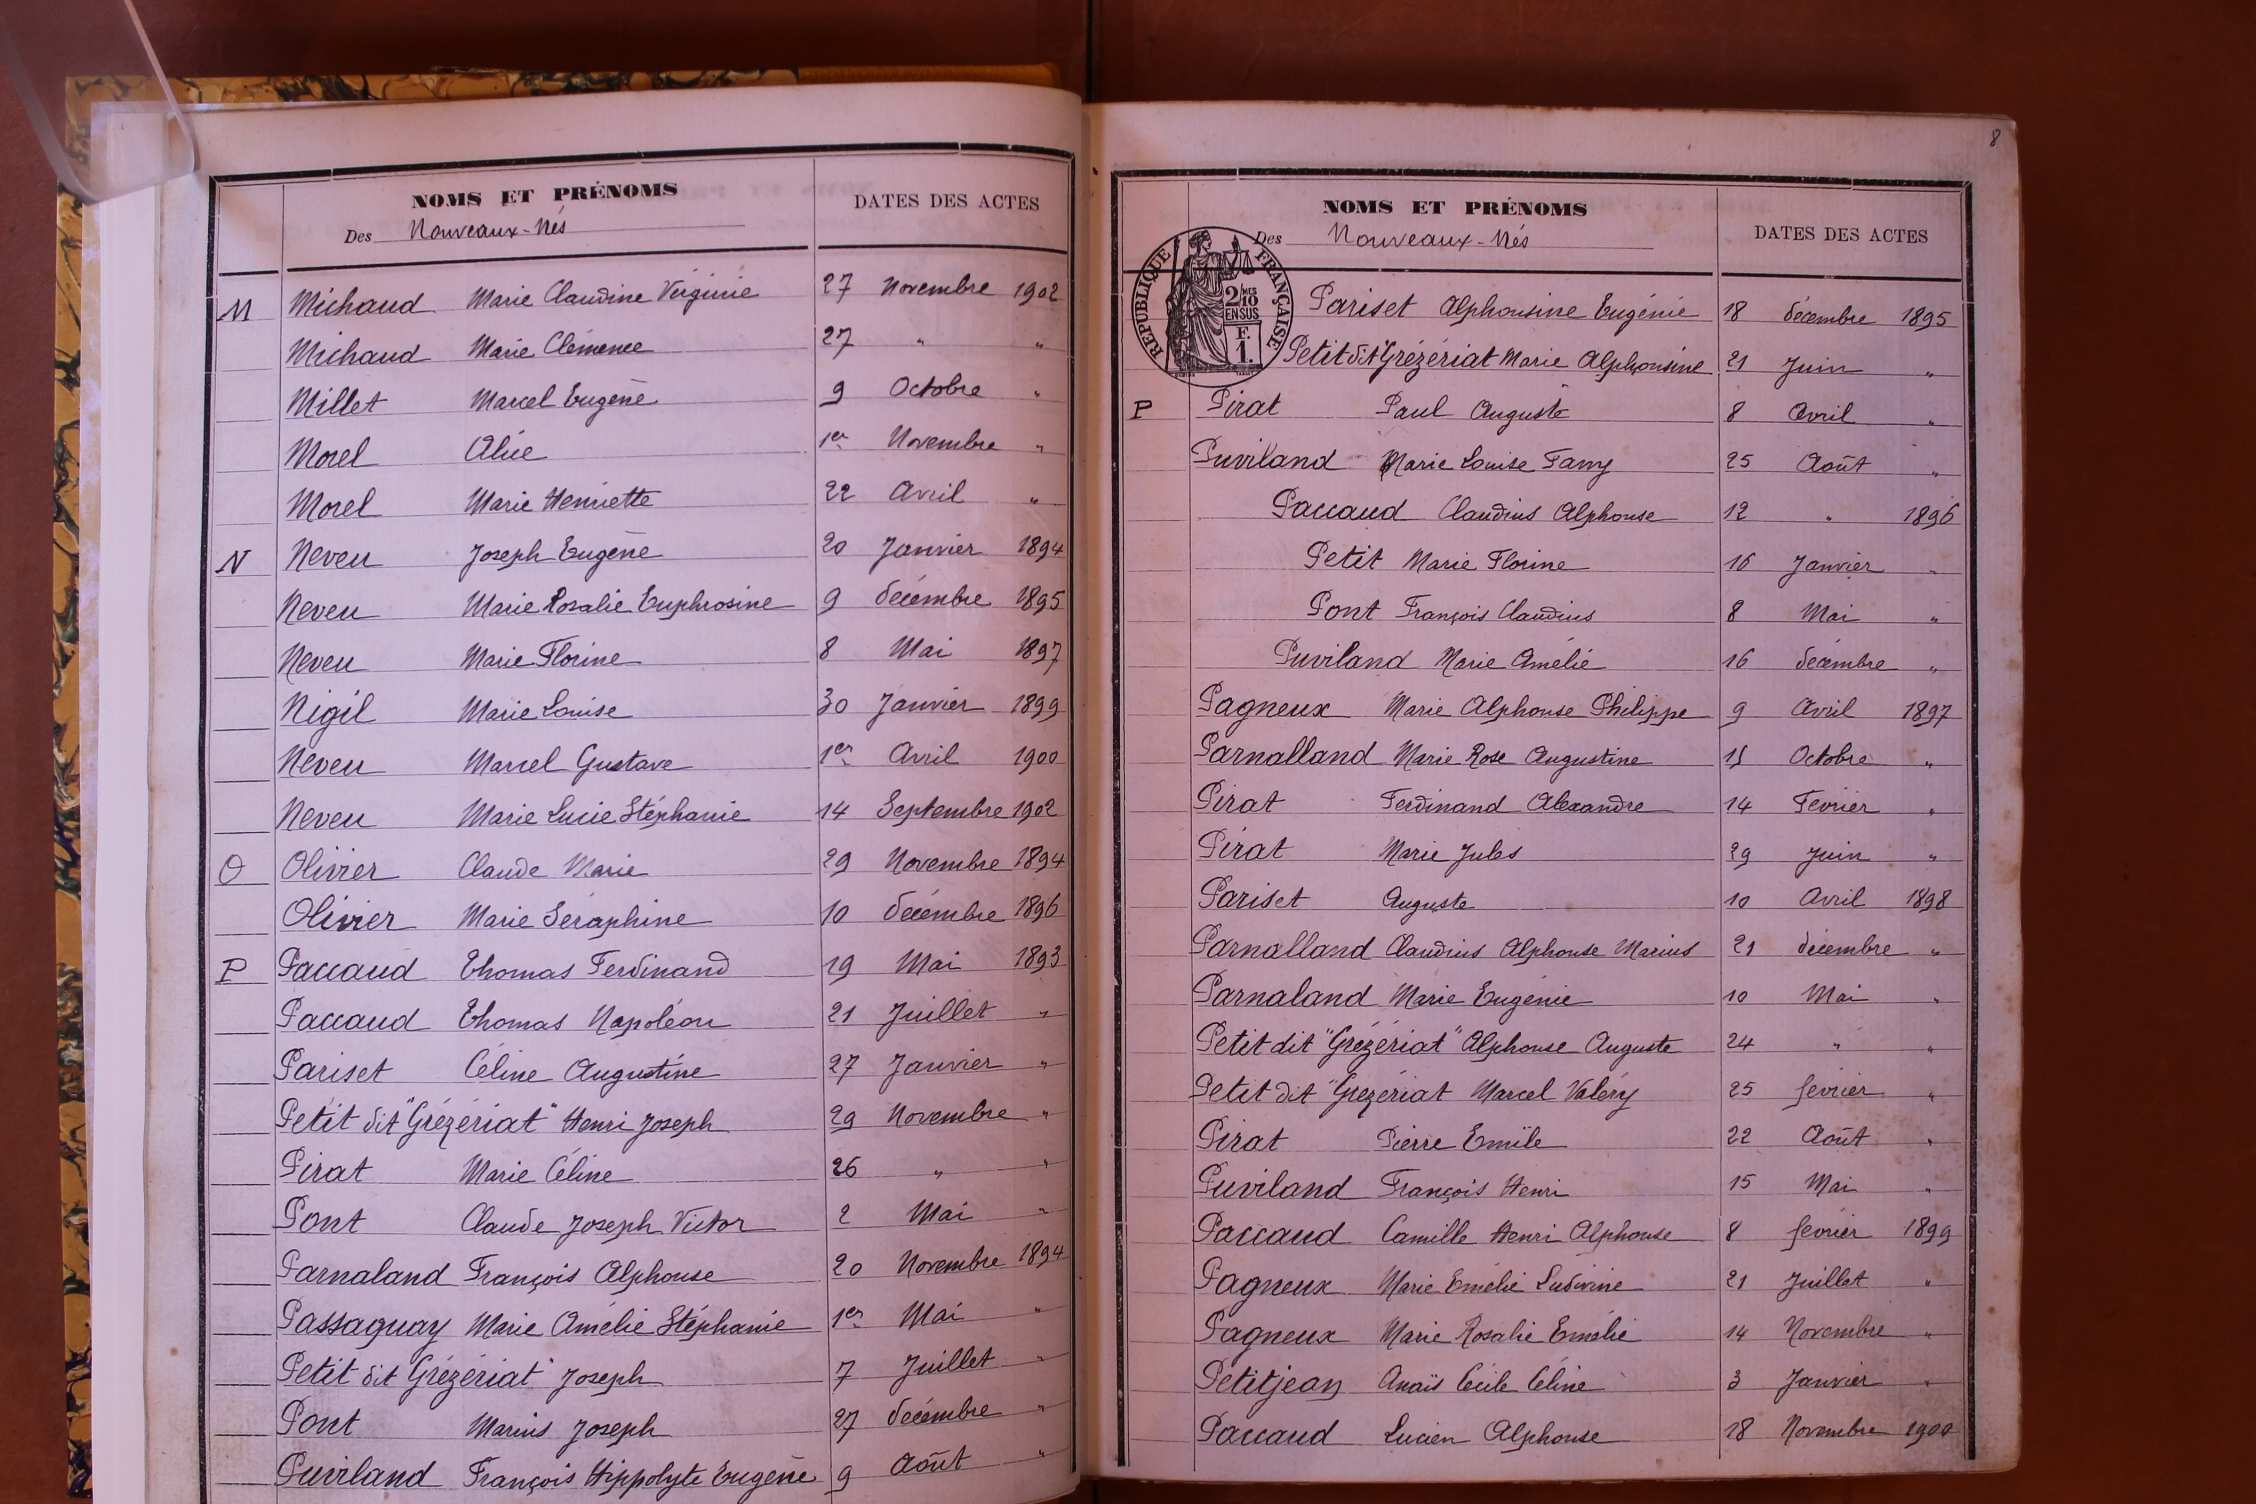 NOMS ET PRÉNOMS
DATES DES ACTES
Des Nouveaux-Nés
M Michaud Marie Claudine Virginie 27 Novembre 1902
Michaud Marie Clémence 27 " "
Millet Marcel Eugène 9 Octobre "
Morel Alice 1er Novembre "
Morel Marie Henriette 22 Avril "
N Neveu Joseph Eugène 20 Janvier 1894
Neveu Marie Rosalie Euphrosine 9 décembre 1895
Neveu Marie Florine 8 Mai 1897
Nigil Marie Louise 30 Janvier 1899
Neveu Marcel Gustave 1er Avril 1900
Neveu Marie Lucie Stéphanie 14 Septembre 1902
O Olivier Claude Marie 29 Novembre 1894
Olivier Marie Séraphine 10 décembre 1896
P Paccaud Thomas Ferdinand 19 Mai 1893
Paccaud Thomas Napoléon 21 Juillet "
Pariset Céline Augustine 27 Janvier "
Petit dit "Grézériat" Henri Joseph 29 Novembre "
Pirat Marie Céline 26 " "
Pont Claude Joseph Victor 2 Mai "
Parnaland François Alphonse 20 Novembre 1894
Passaquay Marie Amélie Stéphanie 1er Mai "
Petit dit "Grézériat" Joseph 7 Juillet "
Pont Marius Joseph 27 décembre "
Puviland François Hippolyte Eugène 9 Août "
8
NOMS ET PRÉNOMS
DATES DES ACTES
Des Nouveaux-Nés
RÉPUBLIQUE FRANÇAISE
2/10 MES
EN SUS
F.
1.
Pariset Alphonsine Eugénie 18 décembre 1895
Petit dit "Grézériat Marie Alphonsine 21 Juin "
P Pirat Paul Auguste 8 Avril "
Puviland Marie Louise Fanny 25 Août "
Paccaud Claudius Alphonse 12 " 1896
Petit Marie Florine 16 Janvier "
Pont François Claudius 8 Mai "
Puviland Marie Amélie 16 décembre "
Pagneux Marie Alphonse Philippe 9 Avril 1897
Parnalland Marie Rose Augustine 15 Octobre "
Pirat Ferdinand Alexandre 14 Février "
Pirat Marie Jules 29 Juin "
Pariset Auguste 10 Avril 1898
Parnalland Claudius Alphonse Marius 21 décembre "
Parnaland Marie Eugénie 10 Mai "
Petit dit "Grézériat" Alphonse Auguste 24 " "
Petit dit "Grézériat Marcel Valéry 25 février "
Pirat Pierre Emile 22 Août "
Puviland François Henri 15 Mai "
Paccaud Camille Henri Alphonse 8 février 1899
Pagneux Marie Emélie Ludivine 21 Juillet "
Pagneux Marie Rosalie Emélie 14 Novembre "
Petitjean Anaïs Cécile Céline 3 Janvier "
Paccaud Lucien Alphonse 18 Novembre 1900